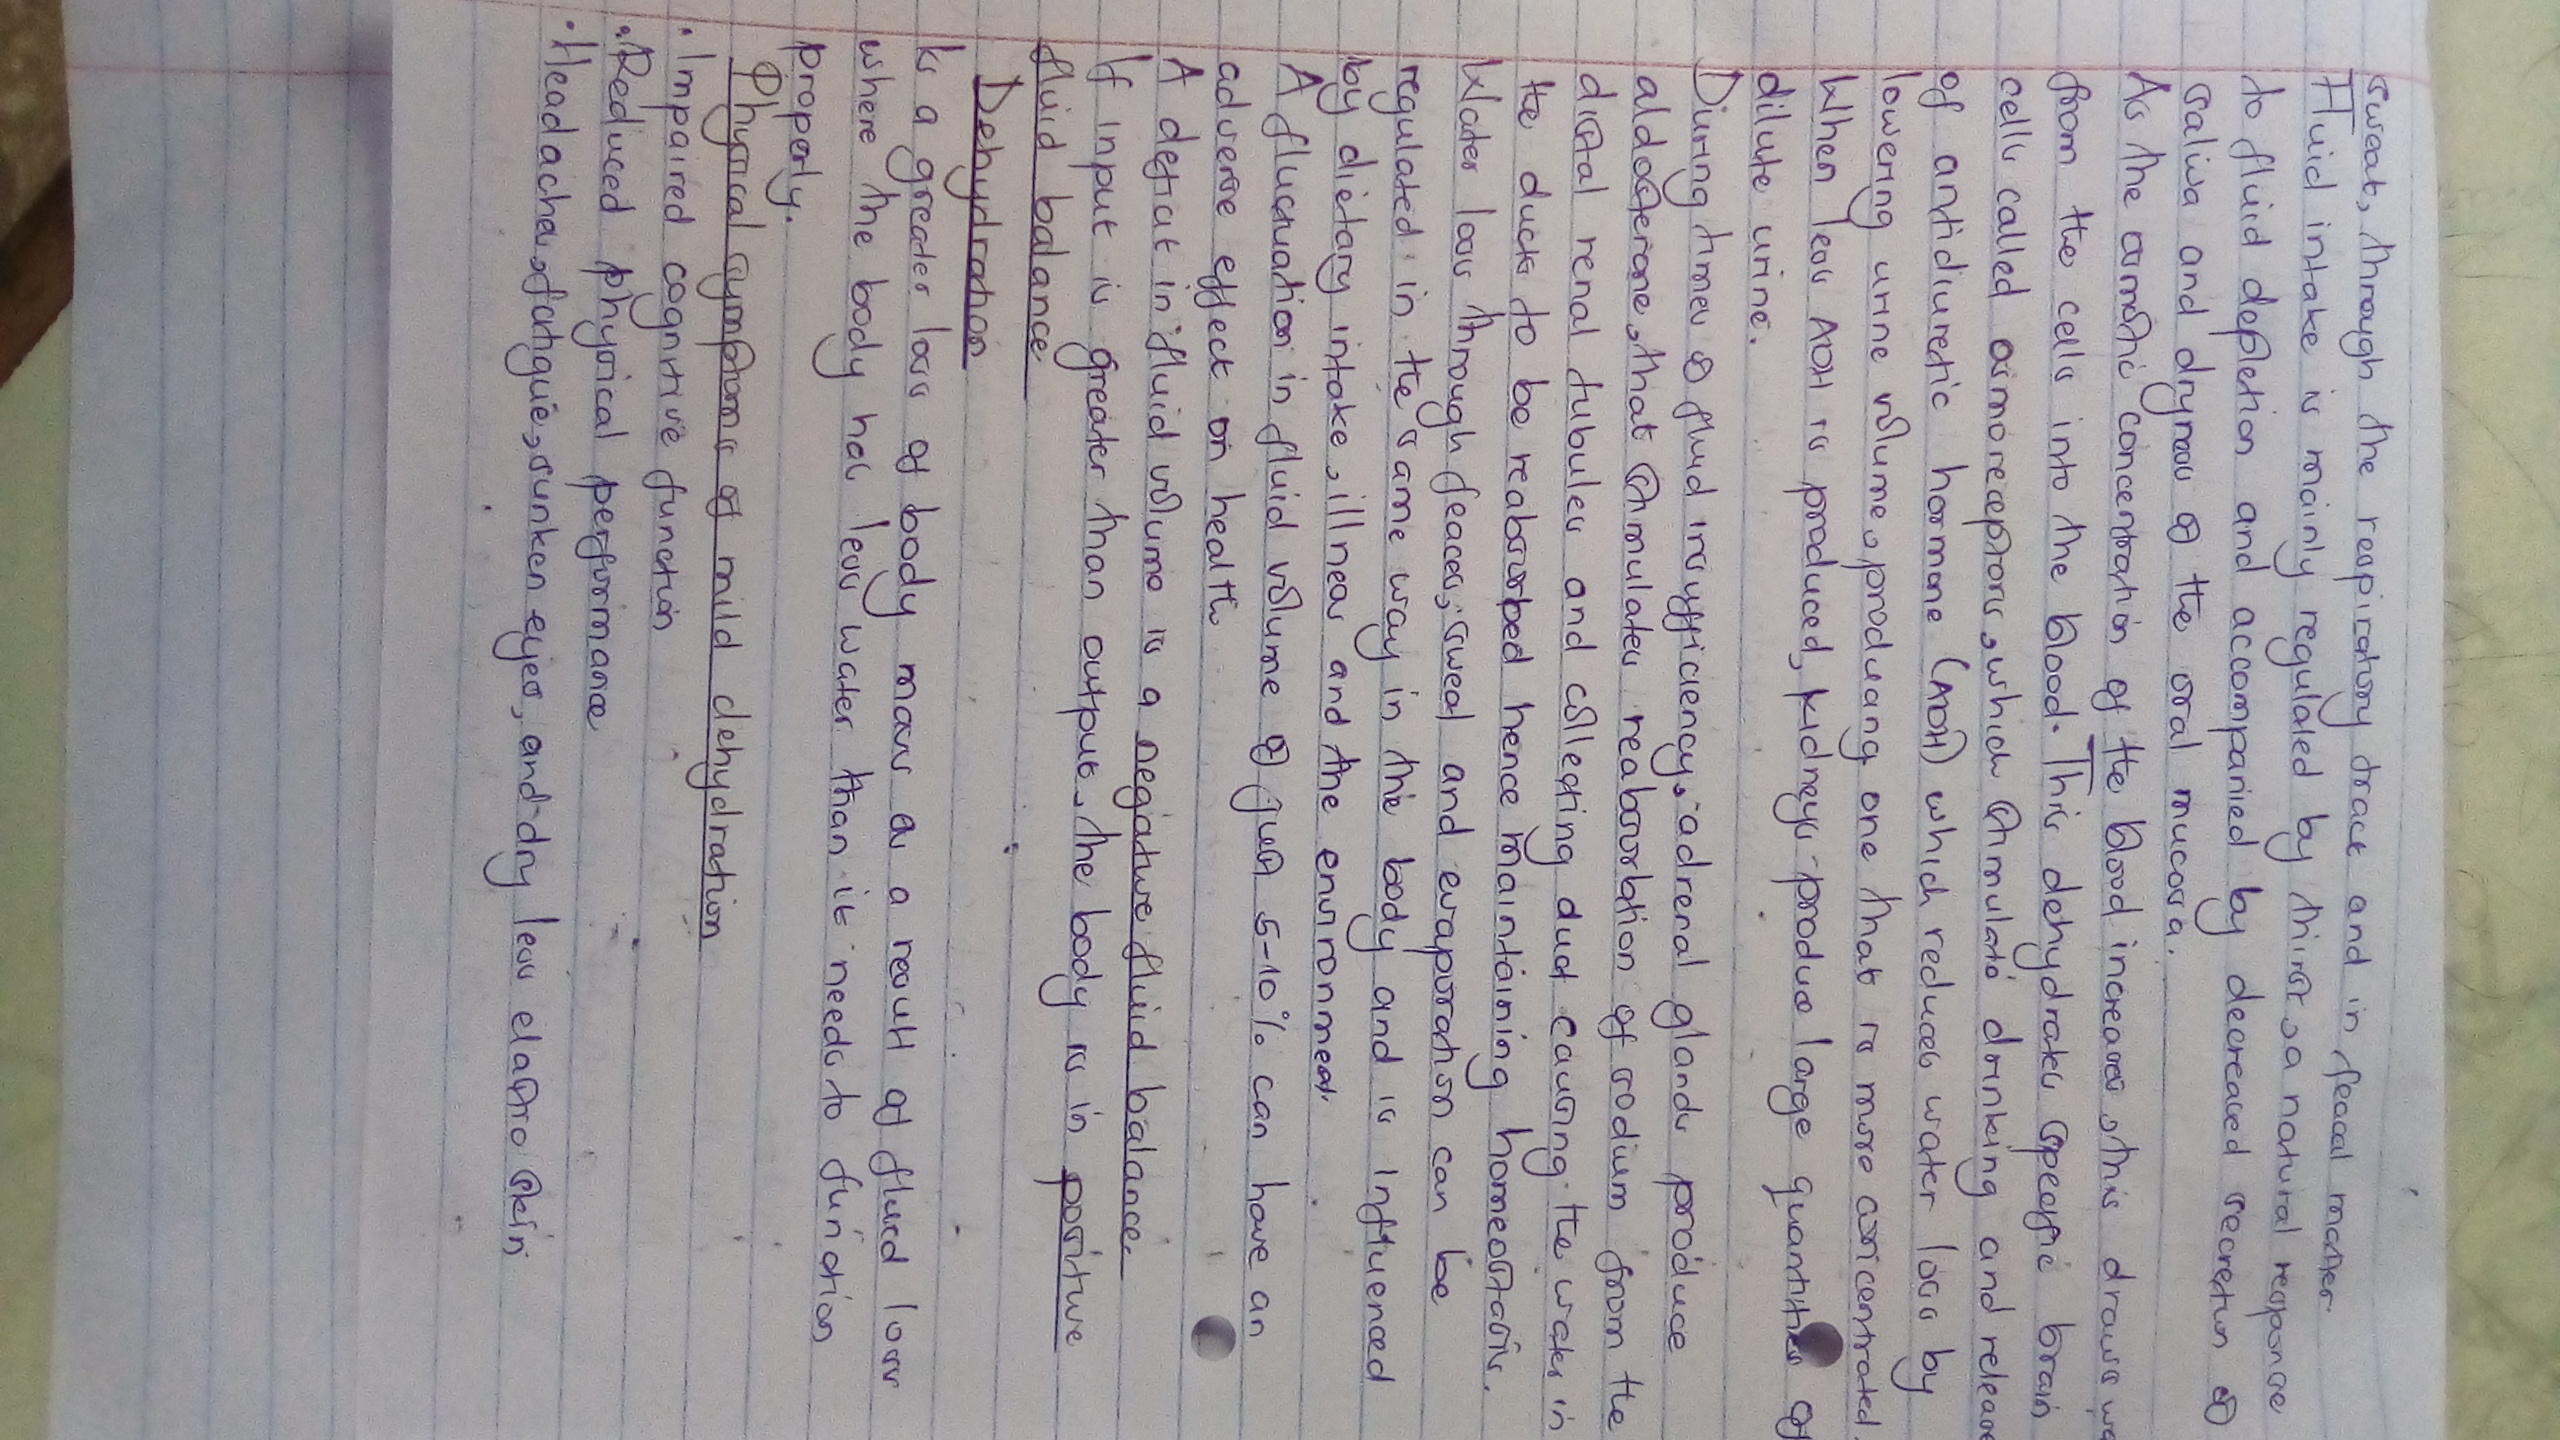 sweat, through the respiratory tract and in feacal matter
Fluid intake is mainly regulated by thirst, a natural response
to fluid depletion and accompanied by decreased secretion of
saliva and dryness of the oral mucosa.
As the osmotic concentration of the blood increases, this draws wa
from the cells into the blood. This dehydrates specific brain
cells called osmoreceptors, which stimulate drinking and release
of antidiuretic hormone (ADH) which reduces water loss by
lowering urine volume, producing one that is more concentrated.
When less ADH is produced, kidneys produce large quantities of
dilute urine.
During times of fluid insufficiency, adrenal glands produce
aldosterone, that stimulates reabsorbtion of sodium from the
distal renal tubules and collecting duct causing the water in
the ducts to be reabsorbed hence maintaining homeostasis.
Water loss through feaces, sweat and evaporation can be
regulated in the same way in the body and is influenced
by dietary intake, illness and the environment
A fluctuation in fluid volume of just 5-10% can have an
adverse effect on health
A deficit in fluid volume is a negative fluid balance
If input is greater than output, the body is in positive
fluid balance
Dehydration
Is a greater loss of body mass as a result of fluid loss
where the body has less water than it needs to function
properly.
Physical symptoms of mild dehydration
• Impaired cognitive function
• Reduced physical performance
• Headaches, fatigue, sunken eyes, and dry less elastic skin